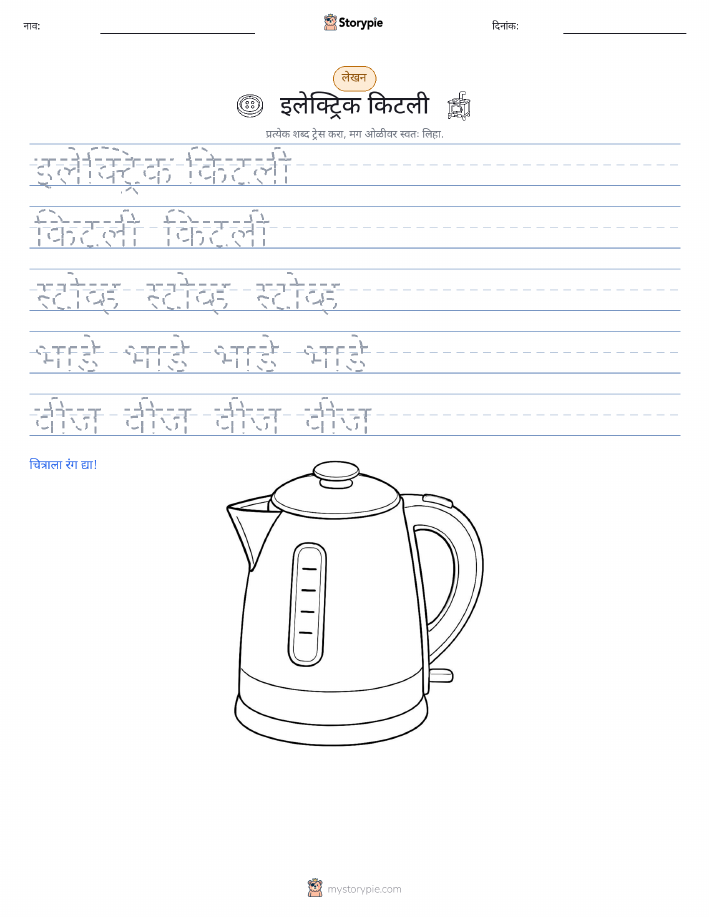 नाव:
Storypie
दिनांक:
लेखन
इलेक्ट्रिक किटली
प्रत्येक शब्द ट्रेस करा, मग ओळीवर स्वतः लिहा.
इलेक्ट्रिक किटली
किटली किटली
स्टोव्ह स्टोव्ह स्टोव्ह
भांडे भांडे भांडे भांडे
वीज वीज वीज वीज
चित्राला रंग द्या!
mystorypie.com